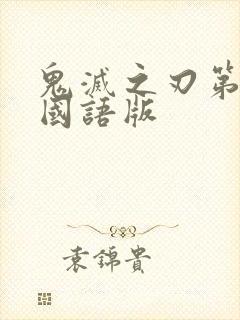 鬼滅之刃第
國語版
袁錦貴